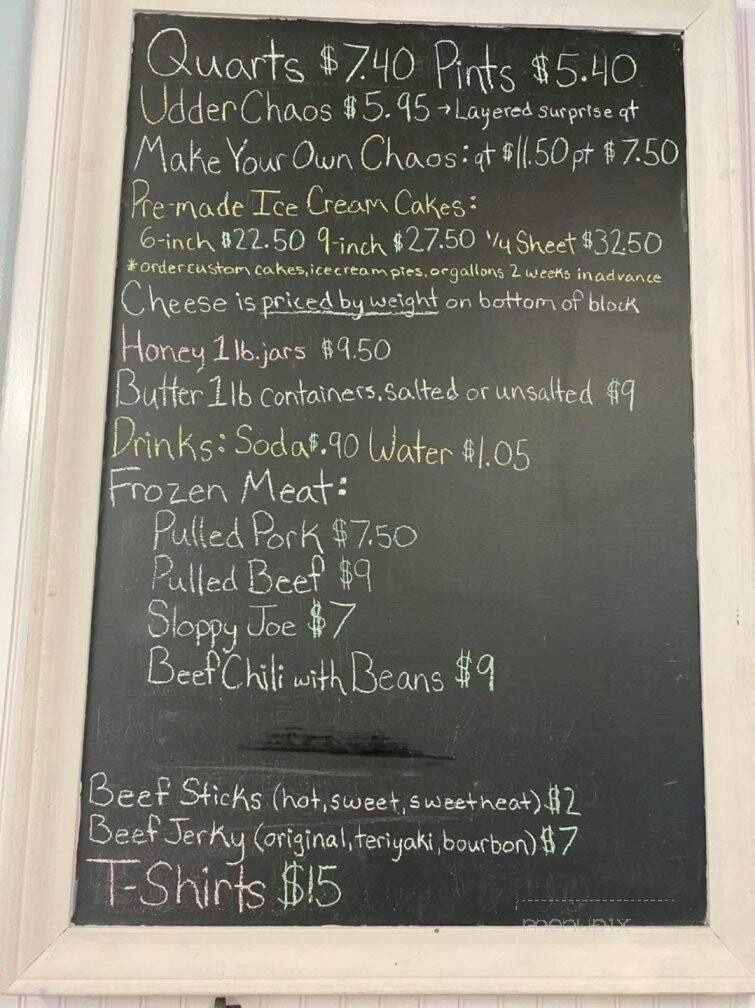 Quarts $7.40 Pints $5.40
Udder Chaos $5.95 → Layered surprise qt
Make Your Own Chaos: qt $11.50 pt $7.50
Pre-made Ice Cream Cakes:
6-inch $22.50 9-inch $27.50 1/4 Sheet $32.50
*order custom cakes, ice cream pies, or gallons 2 weeks in advance
Cheese is priced by weight on bottom of block
Honey 1 lb. jars $9.50
Butter 1lb containers, salted or unsalted $9
Drinks: Soda $.90 Water $1.05
Frozen Meat:
Pulled Pork $7.50
Pulled Beef $9
Sloppy Joe $7
Beef Chili with Beans $9
Beef Sticks (hot, sweet, sweet heat) $2
Beef Jerky (original, teriyaki, bourbon) $7
T-Shirts $15
menupix